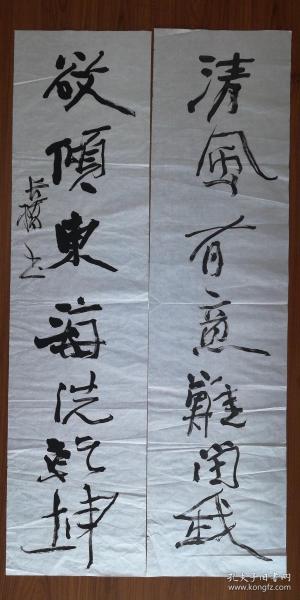 清風有意難留我
欲傾東海洗乾坤
孔夫子旧书网
www.kongfz.com